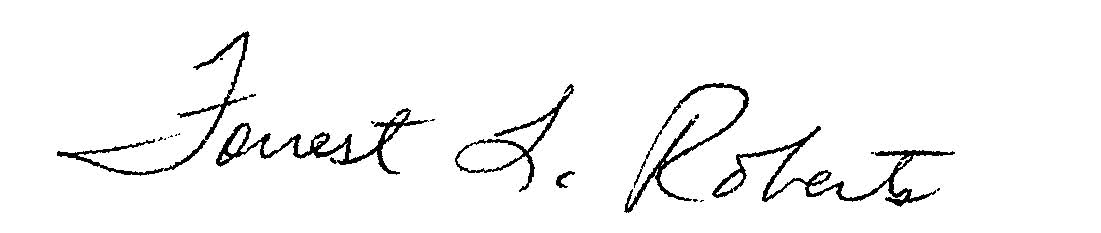 Forrest L. Roberts